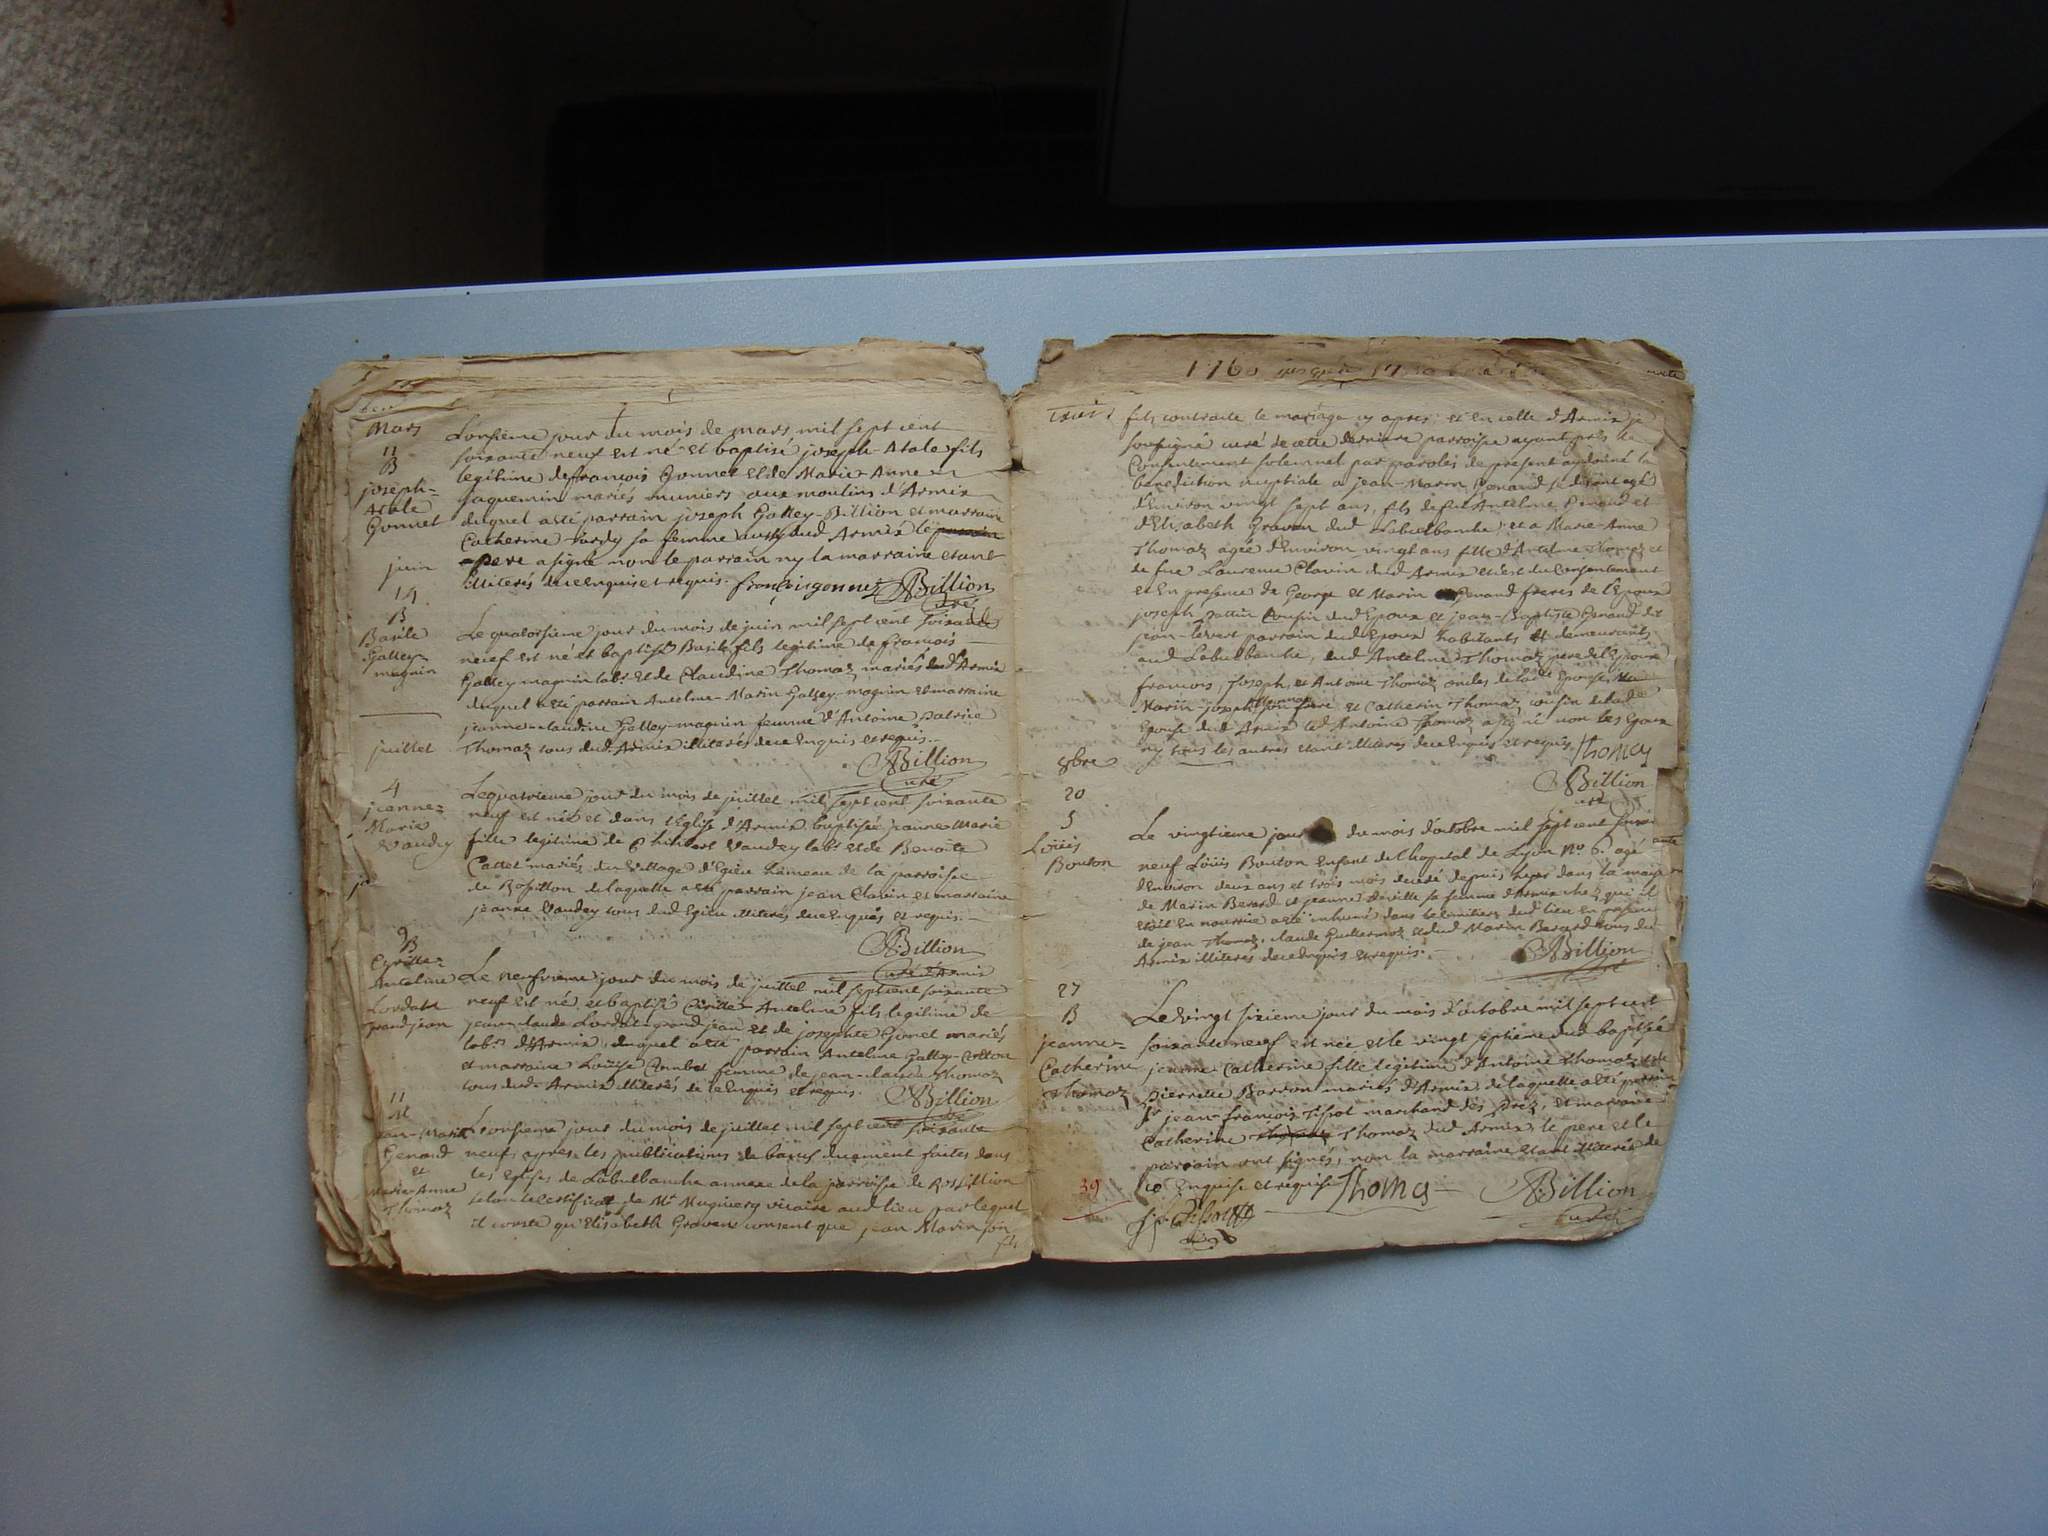 Mars
11
B
joseph=
Atale
Gonnet
L'onsieme jour du mois de mars mil sept cent
soixante neuf est né et baptisé joseph-Atale fils
legitime de françois Gonnet et de Marie-Anne
jaquemin mariés muniers aux moulins d'Armix
duquel a eté parrain joseph Galley-Billion et marraine
Catherine tardy sa femme dud Armix le
pere a signé non le parrain ny la marraine etant
illiterés de ce enquis et requis. francoisgonnet Billion
Curé
juin
14
B
Basile
Galley
magnin
Le quatorsieme jour du mois de juin mil sept cent soixante
neuf est né et baptisé Basile fils legitime de françois
Galley magnin labr et de Claudine Thomaz mariés dud Armix
duquel a eté parrain Anselme-Marin Galley-magnin et marraine
jeanne-claudine Galley-magnin femme d'Antoine
Thomaz tous dud Armix illiterés de ce enquis et requis.
Billion
curé
juillet
4
jeanne=
Marie
Vaudey
Le quatrieme jour du mois de juillet mil sept cent soixante
neuf est née et dans l'Eglise d'Armix baptisée jeanne Marie
fille legitime de Philibert Vaudey labr et de Benoite
Cattet mariés du village d'Egieu hameau de la parroisse
de Rossillon de laquelle a eté parrain jean Clavin et marraine
jeanne Vaudey tous dud Egieu illiterés de ce enquis et requis.
Billion
curé d'Armix
9
B
Antelme
Lordat
grand jean
Le neufvieme jour du mois de juillet mil sept cent soixante
neuf est né et baptisé Antelme fils legitime de
jean-claude Lordat-grand jean et de josephte Gonet mariés
labrs d'Armix, duquel a eté parrain Antelme Galley
et marraine Loüise femme de jean-claude Thomaz
tous dud Armix illiterés de ce enquis et requis. Billion
11
M
jean-Marin
Genand
et
Marie-Anne
Thomaz
L'onsieme jour du mois de juillet mil sept cent soixante
neuf apres les publications de bancs duement faites dans
les Eglises de Labulbanche annexe de la parroisse de Rossillion
selon le certificat de Mr vicaire aud lieu par lequel
il conste qu'Elisabeth Graven consent que jean Marin son
fils
1760
fils contracte le mariage cy apres; et en celle d'Armix je
soussigné curé de cette derniere parroisse ayant pris le
Consentement solemnel par paroles de present ay donné la
benediction nuptiale a jean-Marin Genand agé
d'Environ vingt sept ans, fils de feu Antelme Genand et
d'Elisabeth Graven dud Labulbanche; et a Marie-Anne
Thomaz agée d'Environ vingt ans fille d'Antelme Thomaz et
de fue Laurence Clavin dud Armix et c'est du consentement
et En presence de George et Marin Genand freres de l'Epoux
joseph cousin dud Epoux et jean-Baptiste Genand dit
jean-levert parrain dud Epoux habitants et demeurants
aud Labulbanche, dud Antelme Thomaz pere de l'Epouse
francois, Joseph, et Antoine Thomaz oncles de lade Epouse,
Marin-joseph Thomaz son frere et Catherin Thomaz cousin de lade
Epouse dud Armix led Antoine Thomaz a signé non les Epoux
ny tous les autres etant illiterés de ce Enquis et requis. Thomaz
Billion
curé
8bre
20
S
Loüis
Bouton
Le vingtieme jour du mois d'octobre mil sept cent soixante
neuf Loüis Bouton enfant de l'hopital de Lyon No 6. agé
d'Environ deux ans et trois mois decedé depuis hyer dans la maison
de Marin Berard et jeanne Deville sa femme d'Armix chez qui il
etoit En nourrice a eté inhumé dans le cimitiere dud lieu En presence
de jean Thomaz, claude Guillermoz et dud Marin Berard tous dud
Armix illiterés de ce enquis et requis. Billion
27
B
jeanne=
Catherine
Thomaz
Le vingt sixieme jour du mois d'octobre mil sept cent
soixante neuf est née et le vingt septieme dud baptisée
jeanne Catherine fille legitime d'Antoine Thomaz et de
pierrette Barron mariés d'Armix de laquelle a eté parrain
Sr jean-françois Tissot marchand des prez, et marraine
Catherine Thomaz dud Armix le pere et le
parrain ont signés, non la marraine etant illiterée de
ce Enquise et requise Thomas Billion
curé
39